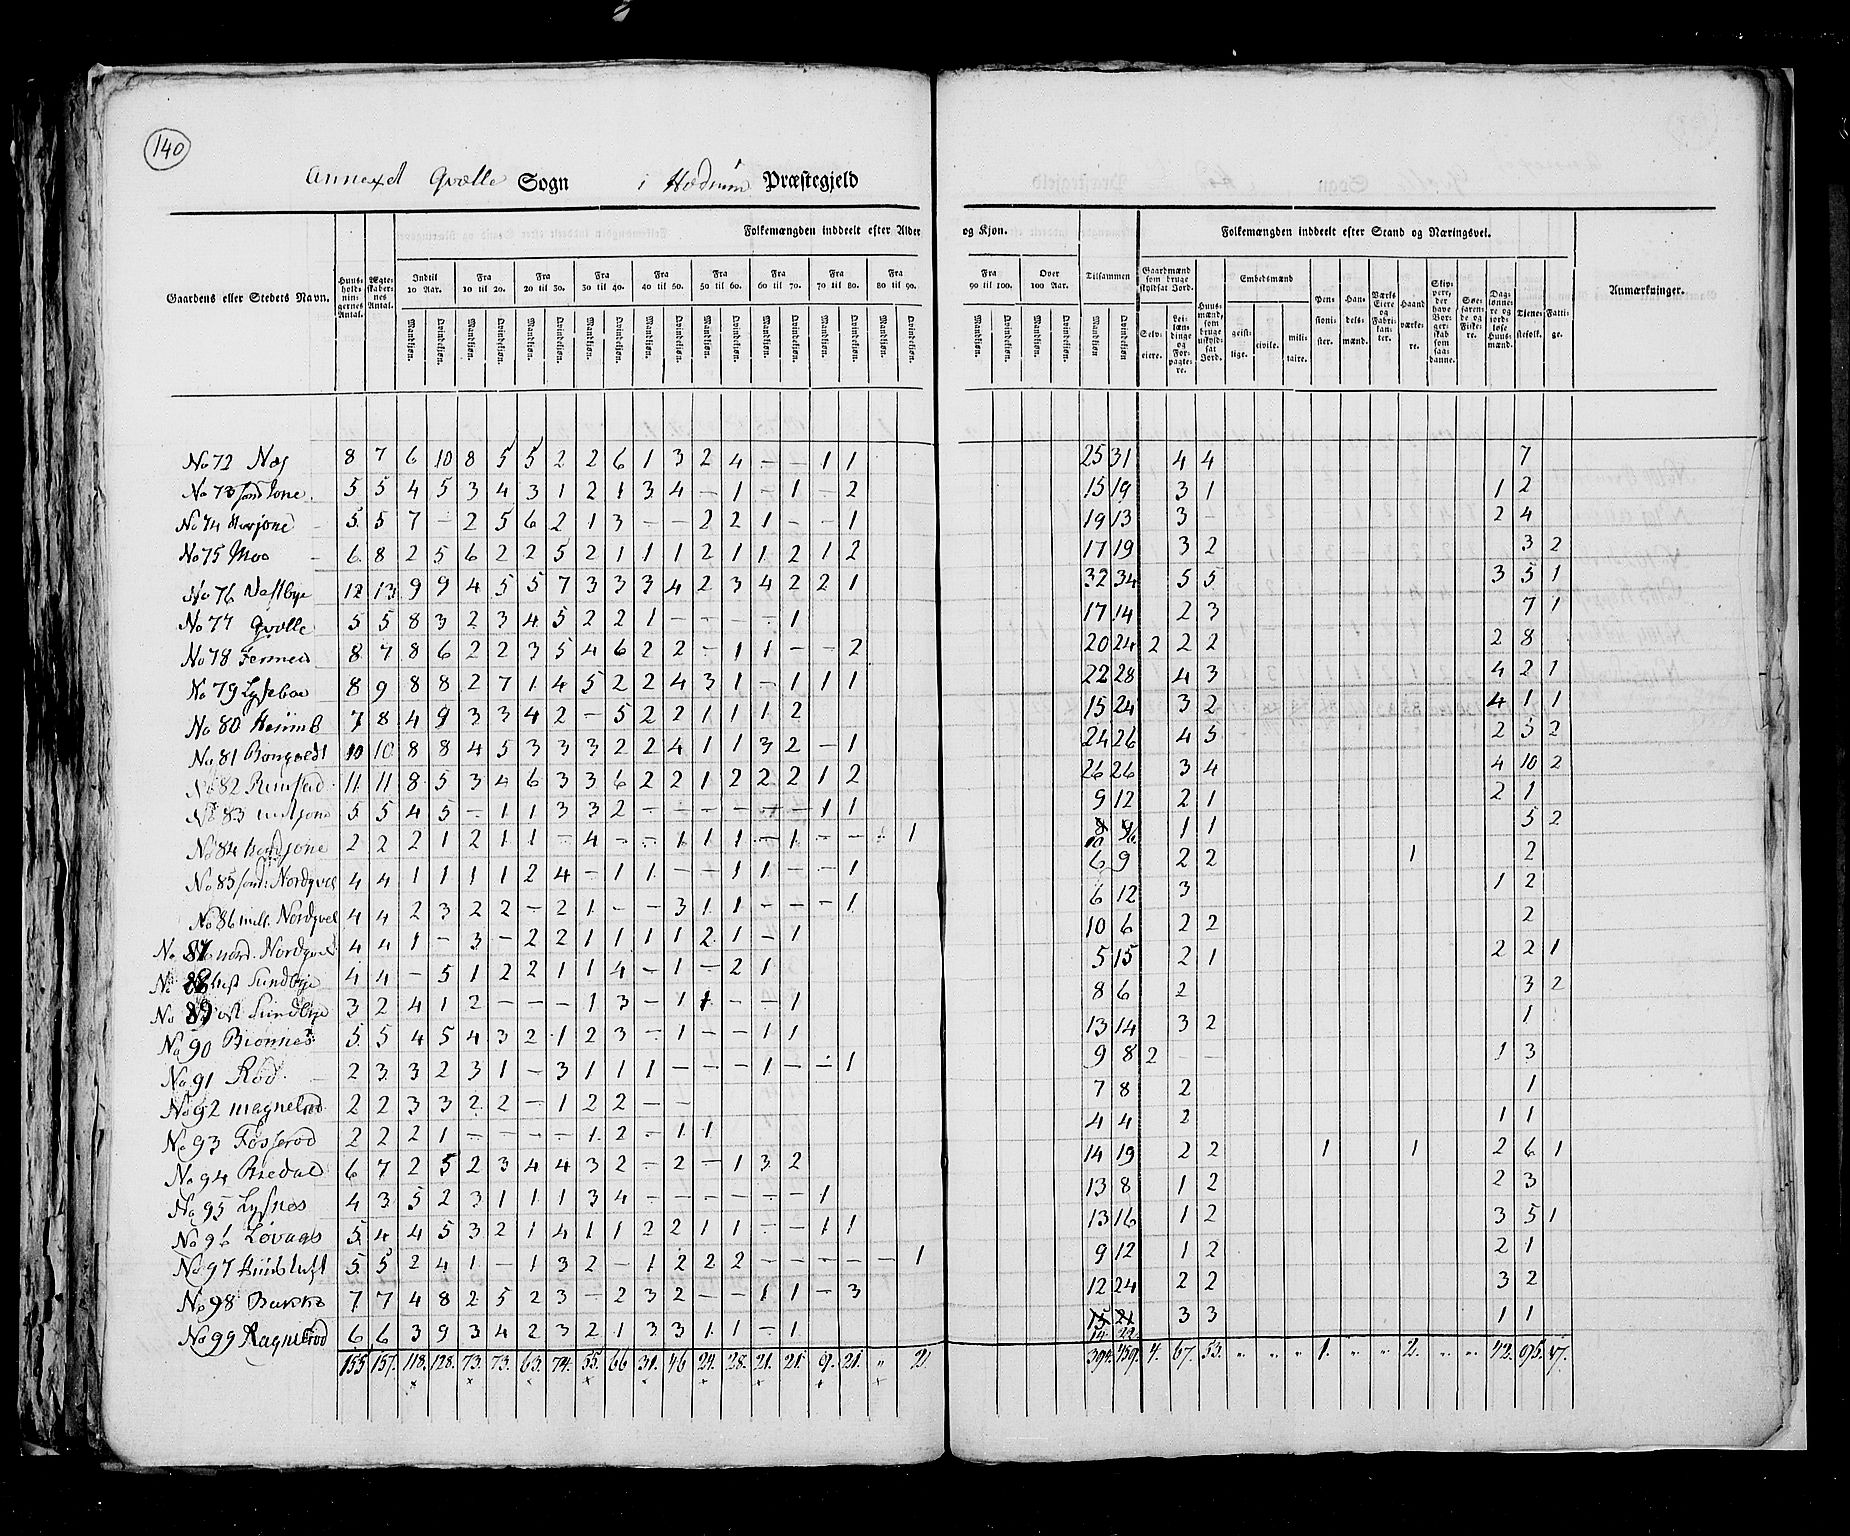 140
Annexet Qvælle Sogn i Hedrum Præstegjeld
Folkemængden inddeelt efter Alder og Kjøn. Folkemængden inddeelt efter Stand og Næringsvei.
Gaardens eller Stedets Navn. Huus-hold-nin-gernes Antal. Ægte-skaber-nes Antal. Indtil 10 Aar. Fra 10 til 20. Fra 20 til 30. Fra 30 til 40. Fra 40 til 50. Fra 50 til 60. Fra 60 til 70. Fra 70 til 80. Fra 80 til 90. Fra 90 til 100. Over 100 Aar. Tilsammen Gaardmænd som bruge skyldsat Jord. Huus-mænd, som bruge uskyld-sat Jord. Embedsmænd Pen-sioni-ster. Han-dels-mænd. Værks Eiere og Fabri-kan-ter. Haand værke-re. Skip-pere, der have Bor-ger-skab som saa-danne. Søe-farende og Fiske-re. Dag-lønne-re og jord-løse Huus-mænd. Tjene-stefolk. Fatti-ge. Anmærkninger.
Mandkjøn. Qvindekjøn. Mandkjøn. Qvindekjøn. Mandkjøn. Qvindekjøn. Mandkjøn. Qvindekjøn. Mandkjøn. Qvindekjøn. Mandkjøn. Qvindekjøn. Mandkjøn. Qvindekjøn. Mandkjøn. Qvindekjøn. Mandkjøn. Qvindekjøn. Mandkjøn. Qvindekjøn. Mandkjøn. Qvindekjøn. Mandkjøn Qvindekjøn Selv-eiere. Lei-læn-dinge og For-pagte-re. geist-lige. civile. mili-taire.
No 72 Næs 8 7 6 10 8 5 5 2 2 6 1 3 2 4 – – 1 1 25 31 4 4 7
No 73 5 5 4 5 3 4 3 1 2 1 3 4 – 1 – 1 – 2 15 19 3 1 1 2
No 74 5 5 7 – 2 5 6 2 1 3 – – 2 2 1 – – 1 19 13 3 – 2 4
No 75 Moe 6 8 2 5 6 2 2 5 2 1 1 1 2 1 1 2 1 2 17 19 3 2 3 2
No 76 Vestbye 12 13 9 9 4 5 5 7 3 3 3 4 2 3 4 2 2 1 32 34 5 5 3 5 1
No 77 Qvælle 5 5 8 3 2 3 4 5 2 2 1 – – – – 1 17 14 2 3 7 1
No 78 8 7 8 6 2 2 3 5 4 6 2 2 – 1 1 – – 2 20 24 2 2 2 2 8
No 79 Lyseboe 8 9 8 8 2 7 1 4 5 2 2 4 3 1 – 1 1 1 22 28 4 3 4 2 1
No 80 7 8 4 9 3 3 4 2 – 5 2 2 1 1 1 2 15 24 3 2 4 1 1
No 81 10 10 8 8 4 5 3 3 3 2 2 4 1 1 3 2 – 1 24 26 4 5 2 5 2
No 82 11 11 8 5 3 4 6 3 3 6 2 2 1 2 2 2 1 2 26 26 3 4 4 10 2
No 83 5 5 4 5 – 1 1 3 3 2 – – – – – – 1 1 9 12 2 1 2 1
No 84 2 2 2 1 2 1 1 – 4 – – 1 1 1 – 1 – – – 1 10 6 1 1 5 2
No 85 Nordqvel 4 4 1 1 1 1 1 2 4 – 1 1 – – 1 1 – 1 6 9 2 2 1 2
No 86 mell. Nordqvel 4 4 2 3 2 2 – 2 1 – – 3 1 1 – – – 1 6 12 3 1 2
No 87 nord. Nordqvel 4 4 1 – 3 – 2 2 1 1 1 1 2 1 – 1 10 6 2 2 2
No 88 vest Sundbye 4 4 – 5 1 2 2 1 1 4 – 1 – 2 1 5 15 2 1 2 2 1
No 89 øst Sundbye 3 2 4 1 2 – – – 1 3 – 1 1 – – 1 8 6 2 3 2
No 90 Biønnes 5 5 4 5 4 3 2 1 2 3 – 1 – – 1 1 13 14 3 2 1
No 91 Rød 2 3 3 2 3 1 – 3 1 1 1 – – – 1 – – 1 9 8 2 – – 1 3
No 92 Magnerød 2 2 3 3 2 2 – 1 2 2 – – 7 8 2 1
No 93 Fosserød 2 2 2 1 – – – – 1 2 – 1 1 4 4 2 1 1
No 94 Bredal 6 7 2 5 2 3 4 4 3 2 – 2 – 1 3 2 14 19 2 2 1 1 2 6 1
No 95 Lysnes 4 3 5 2 3 1 1 1 3 4 – – – – – – 1 13 8 1 2 2 3
No 96 Løvaas 5 4 4 5 3 2 1 4 1 1 2 2 1 1 – – 1 1 13 16 1 2 3 5 1
No 97 5 5 2 4 1 – 1 3 2 – 1 2 2 2 – – – – – 1 9 12 1 2 2 1
No 98 Bakke 7 7 4 8 2 5 2 3 – 2 3 2 – – 1 1 – 3 12 24 2 2 3 2
No 99 Ragnerød 6 6 3 9 3 4 2 3 2 1 3 3 1 1 – 1 14 22 3 3 1 1
155. 157. 113. 128. 73. 73. 63. 74. 55. 66 31. 46 24. 28. 21. 21 9. 21. „ 2. 394. 459. 4. 67. 55. „ „ „ 1. „ „ 2. „ „ 42. 95. 17.